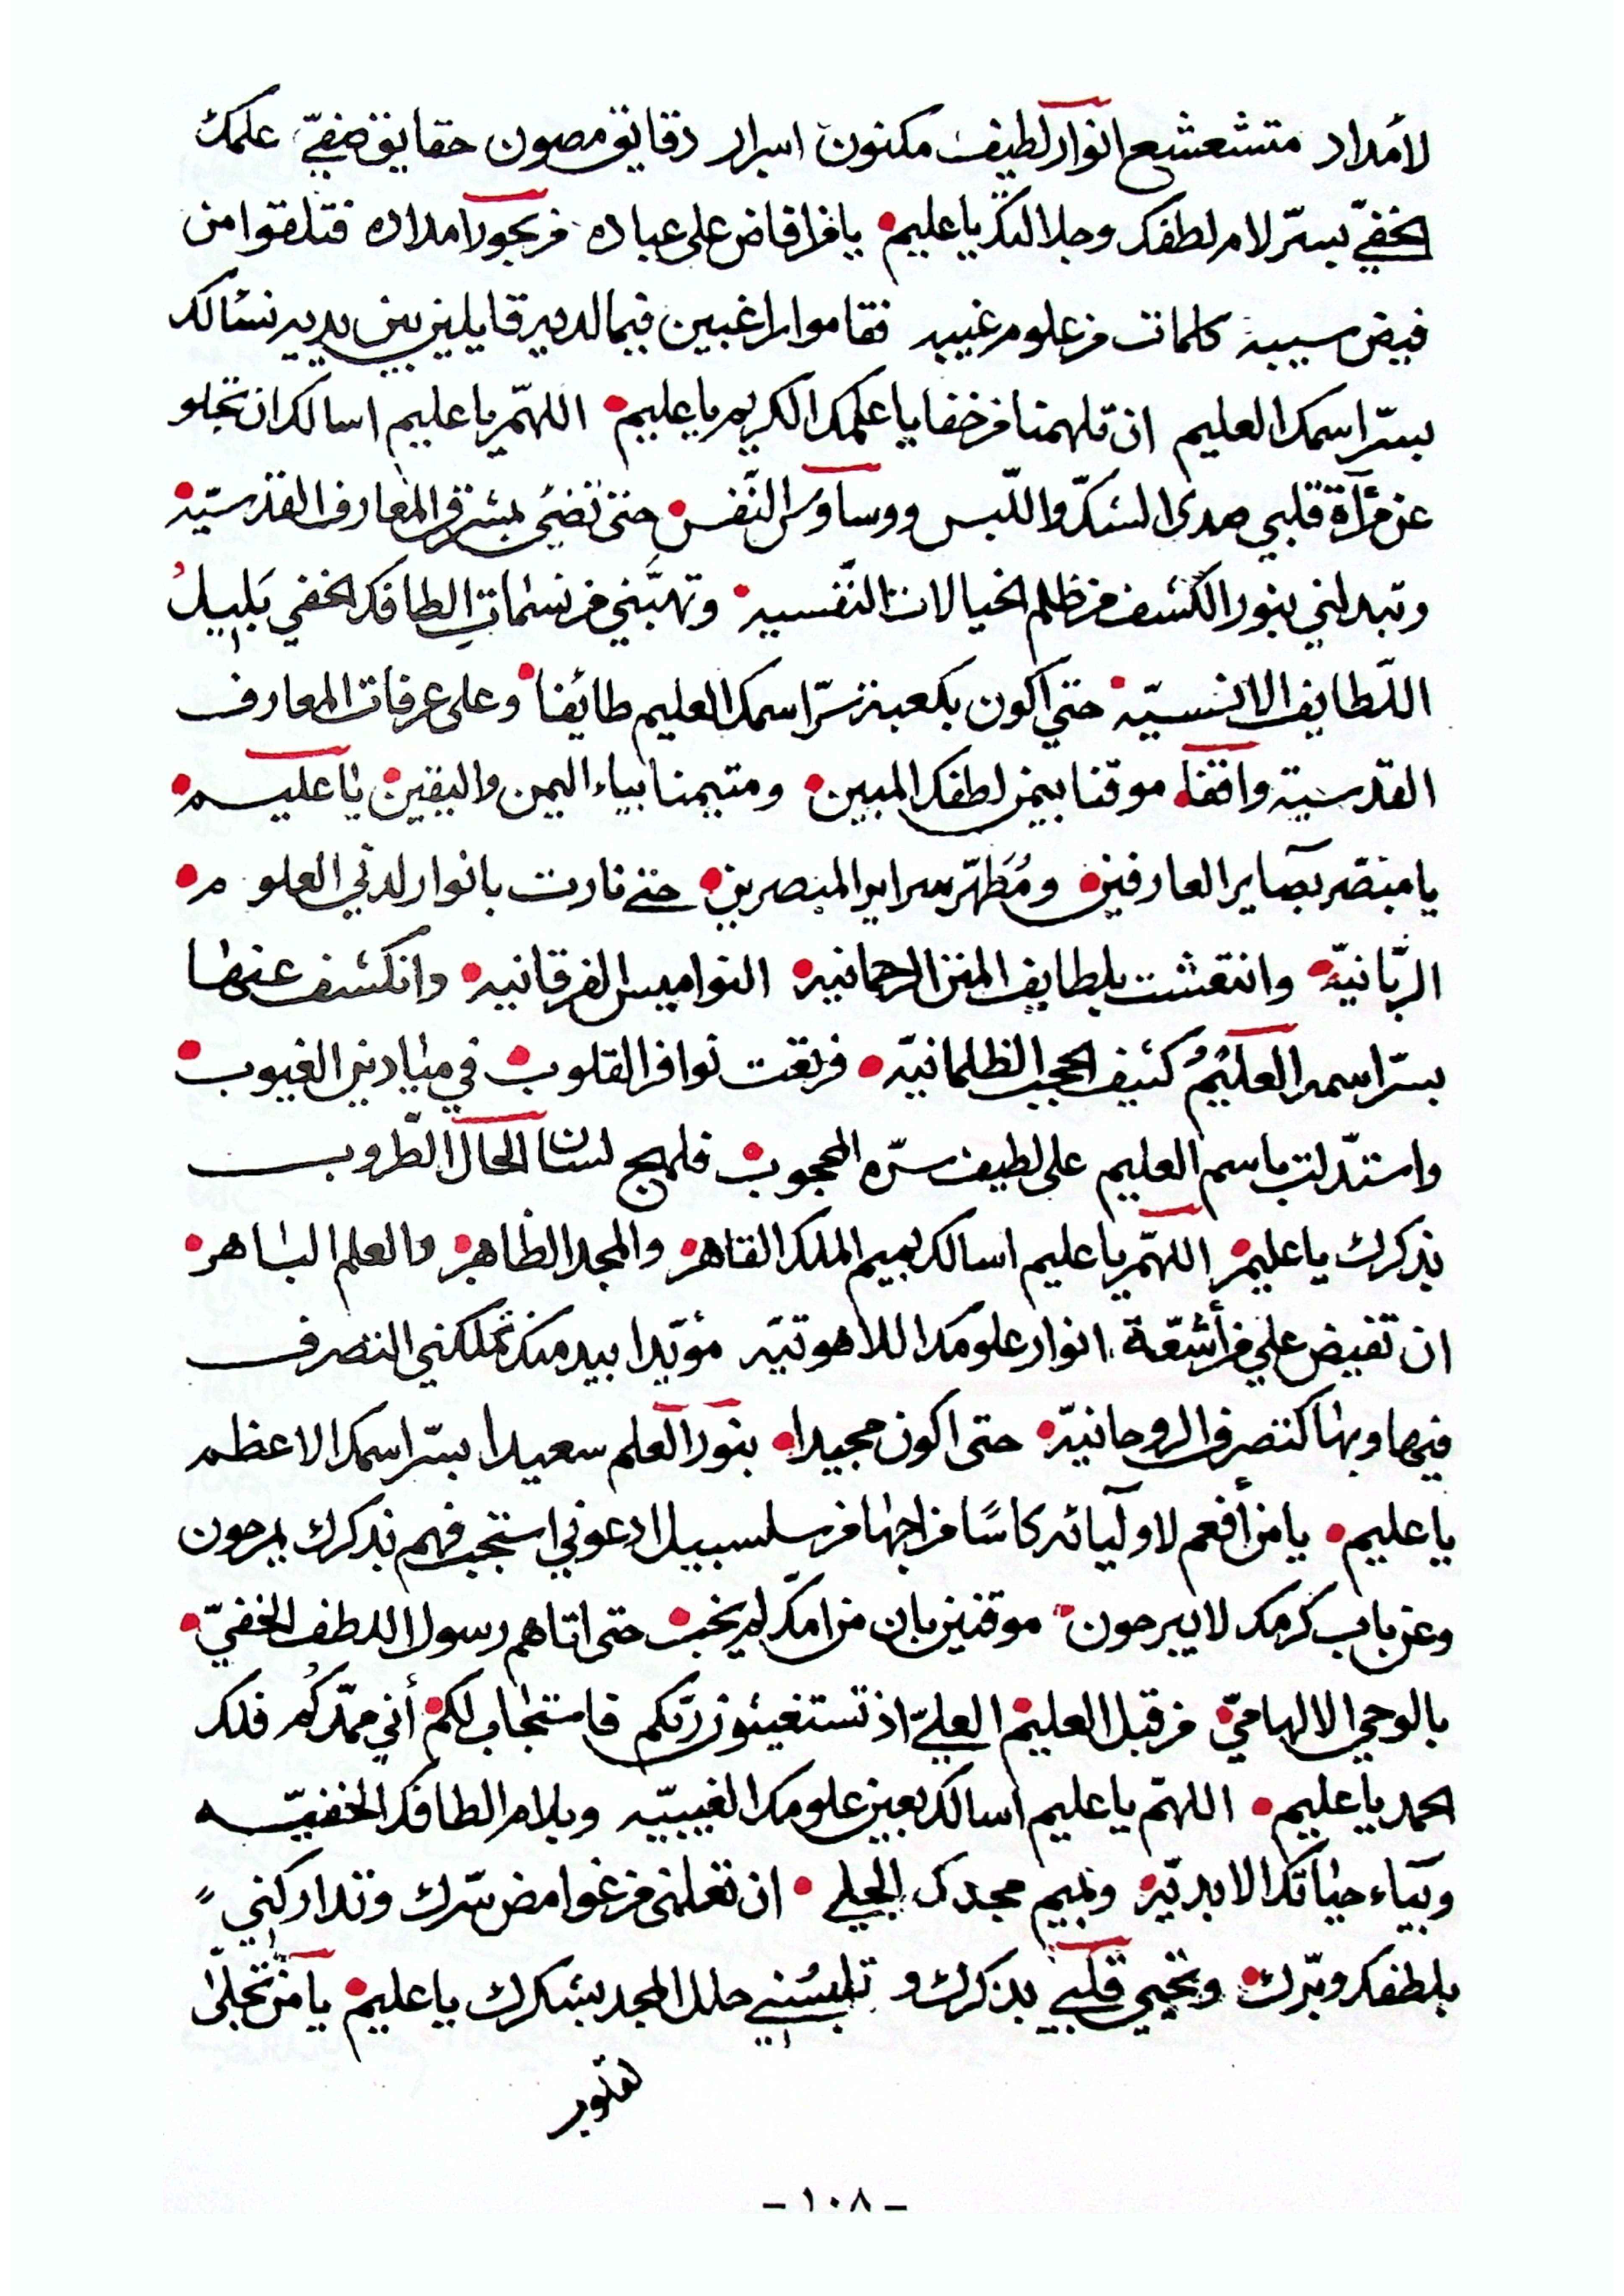 لأمداد متشعشع انوار لطيف مكنون اسرار دقايق مصون حقايق علمك
الخفيّ بسرّ لام لطفك وجلالك يا عليم يا من افاض على عباده من بحور امداده فتلقوا من
فيض سيبه كلمات من علوم غيبه فقاموا راغبين فيما لديه قايلين بين يديه نسالك
بسرّ اسمك العليم ان تلهمنا من خفايا علمك الكريم يا عليم اللهمّ يا عليم اسالك ان تجلو
عن مرآة قلبي صدى الشكّ واللّبس ووساوس النّفس حتى تضئ بمشرق المعارف القدسيّة
وتبدلني بنور الكشف من ظلم الخيالات النّفسيه وتهبّني من نسمات الطافك الخفي بليل
اللّطايف الانسيّة حتى اكون بكعبة سرّ اسمك العليم طائفا وعلى عرفات المعارف
القدسية واقفا موقنا بيمن لطفك المبين ومتيمنا بياء اليمن واليقين يا عليم
يا مبصّر بصاير العارفين ومُطَهّر سراير المبصرين حتى نارت بانوار لدني العلوم
الربّانيّة وانتقشت بلطايف المنن الرحمانيه النواميس الفرقانيه وانكشف عنها
بسرّ اسمه العليم كثيف الحجب الظلمانيّه فرتعت نوافر القلوب في ميادين الغيوب
واستدلت باسم العليم على لطيف سرّه المحجوب فلهج لسان الحال الطّروب
بذكرك يا عليم اللهمّ يا عليم اسالك بميم الملك القاهر والمجد الظاهر والعلم الباهر
ان تفيض علي من أشعّة انوار علومك اللاهوتيّه مؤيّدا بيد منك تملكني التصرف
فيها وبها كتصرف الروحانيّه حتى اكون مجيدا بنور العلم سعيدا بسرّ اسمك الاعظم
يا عليم يا من أفعم لاوليائه كاسًا مزاجها من سلسبيل ادعوني استجب فهم بذكرك يمرحون
وعن باب كرمك لا يبرحون موقنين بان من امّك لم يخب حتى اتاهم رسول اللطف الخفيّ
بالوحي الالهاميّ من قبل العليم العليّ اذ تستغيثون ربّكم فاستجاب لكم أني ممدّكُم فلك
الحمد يا عليم اللهمّ يا عليم اسالك بعين علومك الغيبيّه وبلام الطافك الخفيّه
وبياء حياتك الابديّه وبميم مجدك الجلي ان تعلمنى من غوامض سّرك وتداركني
بلطفك وبرّك وتحيي قلبي بذكرك و تلبسُني حلل المجد بشكرك يا عليم يا من تجلّى
- ١٠٨ -